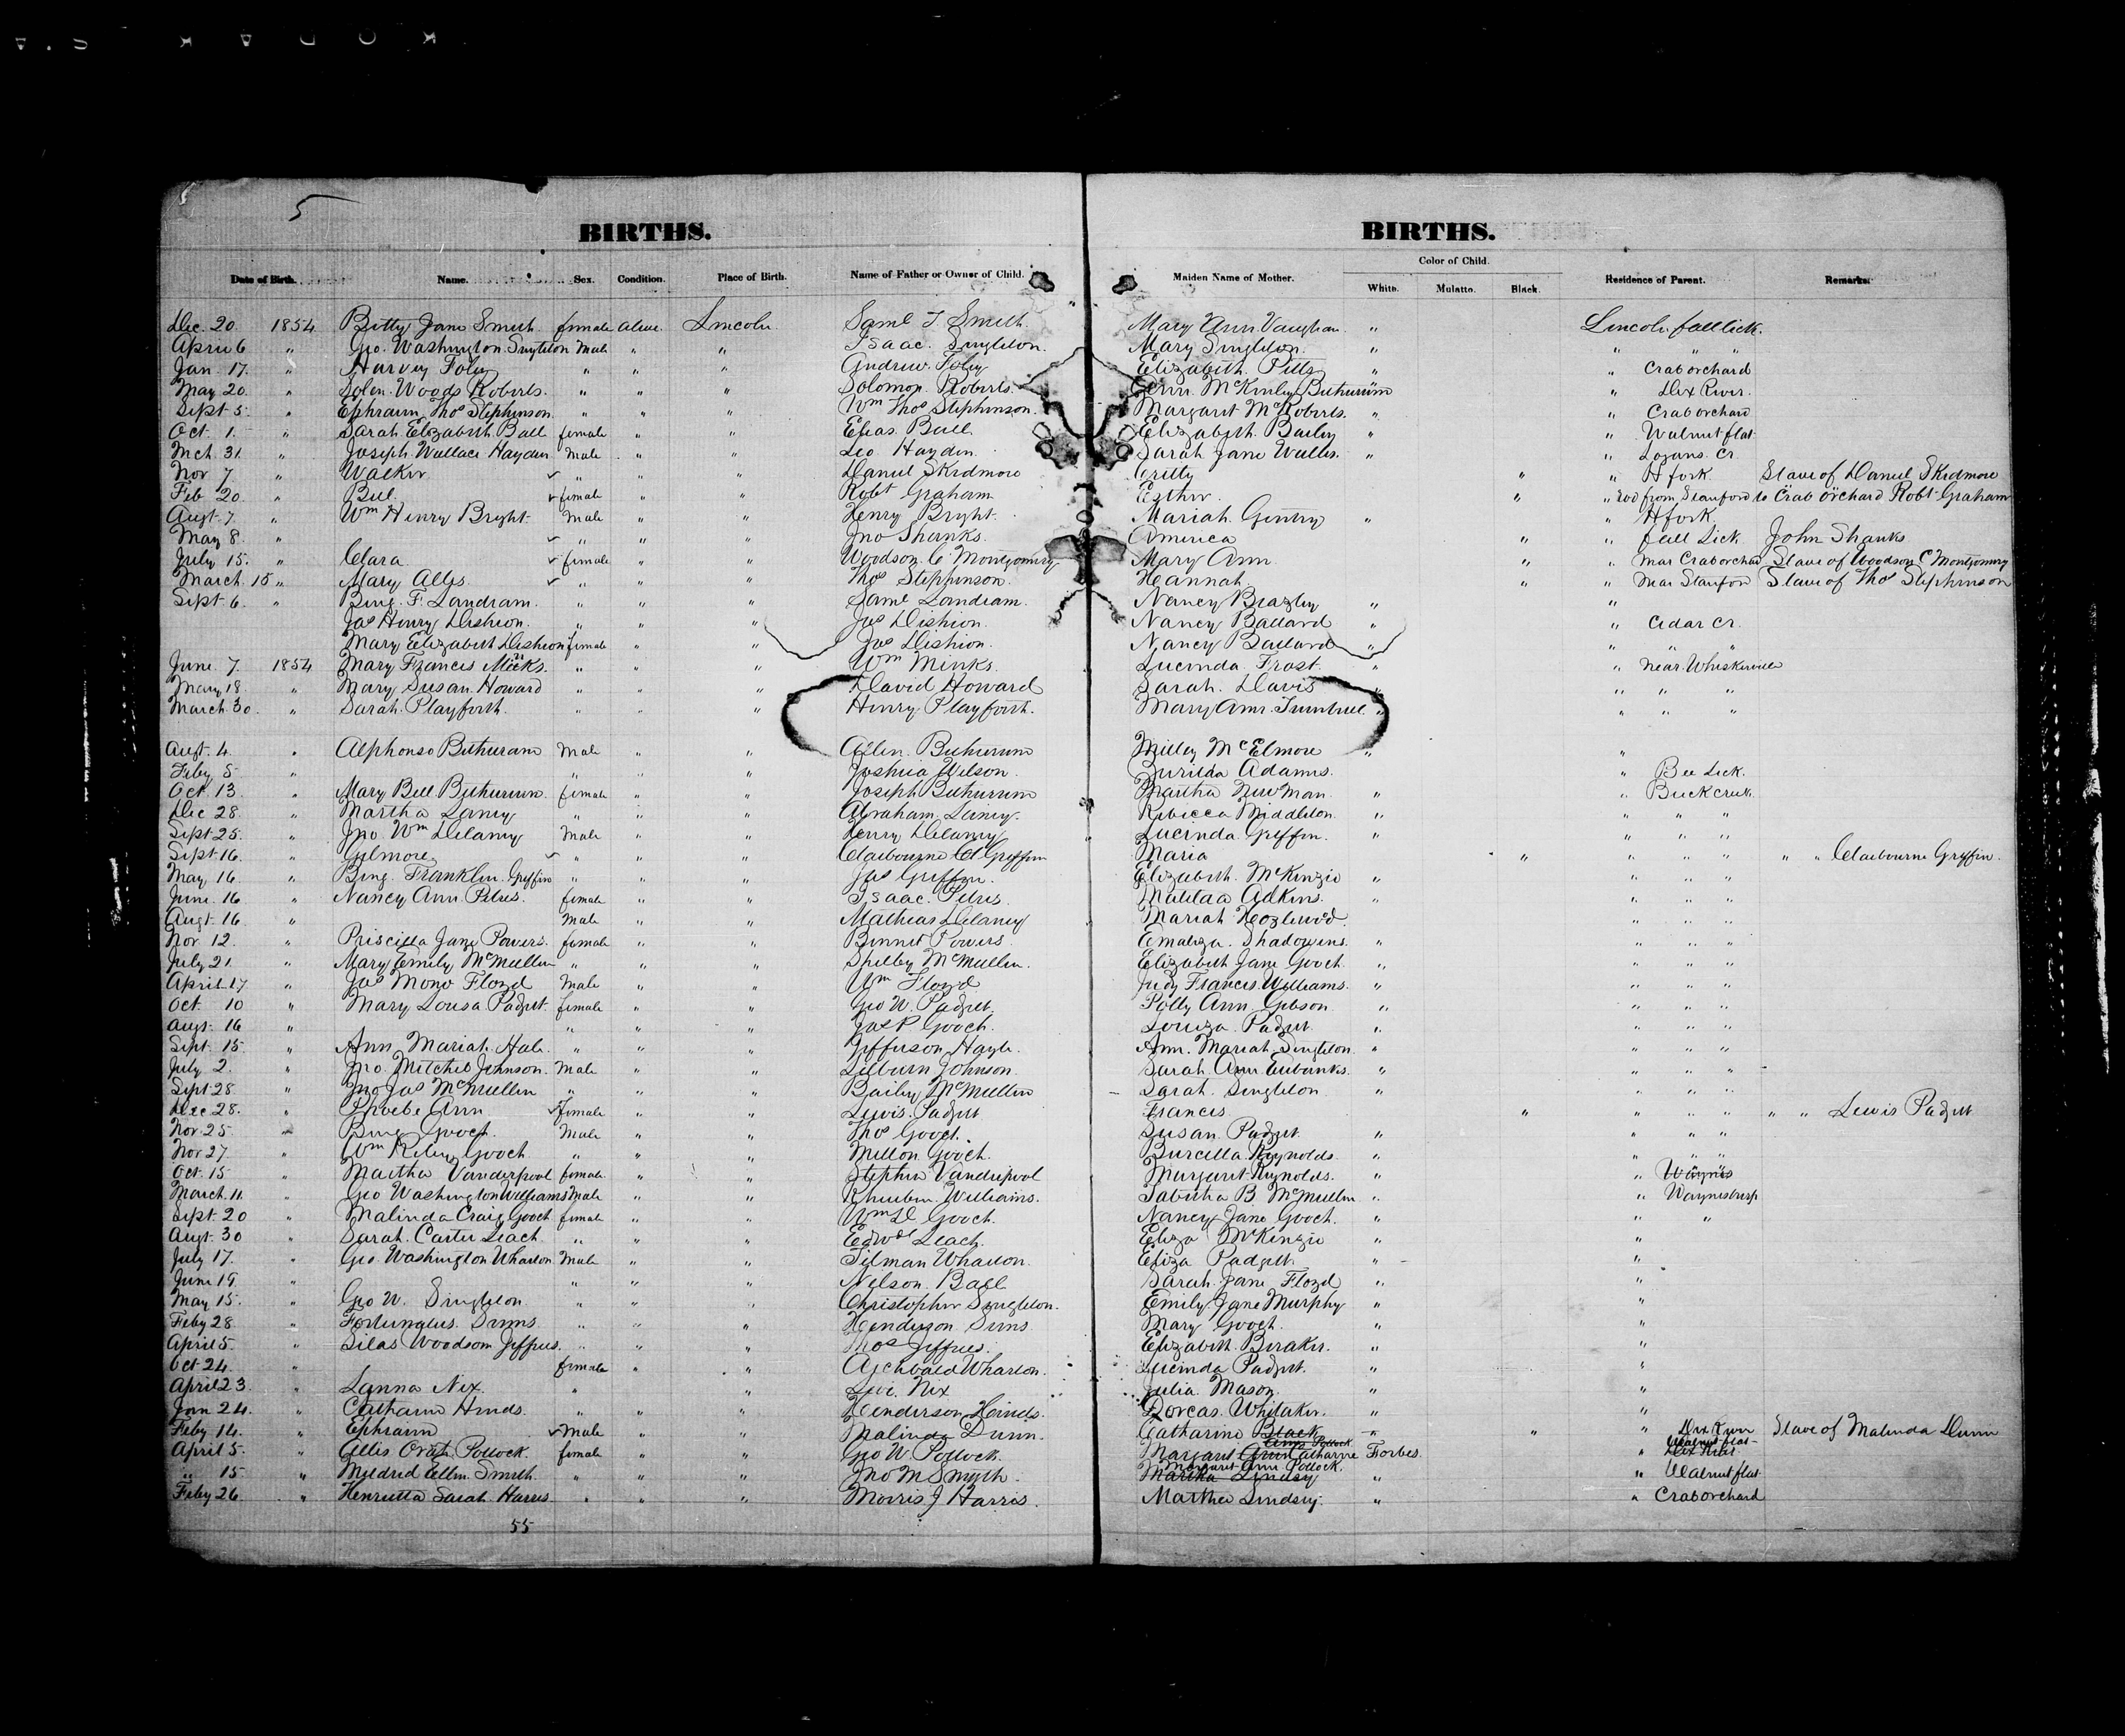 5
BIRTHS. BIRTHS.
Date of Birth. Name. Sex. Condition. Place of Birth. Name of Father or Owner of Child. Maiden Name of Mother. Color of Child. White. Mulatto. Black. Residence of Parent. Remarks.
Dec. 20. 1854 Betty Jane Smith. female alive Lincoln Saml T. Smith Mary Ann Vaughan. " Lincoln fall lick.
April 6 " Geo. Washington Singleton Male " " Isaac. Singleton. Mary Singleton. " " " "
Jan. 17. " Harvey Foley " " " Andrew Foley Elizabeth Pitts " " Crab orchard
May 20. " Solen. Woods Roberts. " " " Solomon Roberts. McKinley Buthurum " Dix River.
Sept 5. " Ephraim Thos Stephinson. " " " Wm Thos Stephinson. Margaret McRoberts. " " Crab orchard
Oct. 1. " Sarah Elizabeth Ball female " " Elias. Ball Elizabeth. Bailey " " Walnut flat
Mch 31. " Joseph Wallace Hayden Male " " Geo Hayden. Sarah Jane Wallis. " " Logans. Cr.
Nov 7 " Walker " " " Daniel Skidmore Critty " " H fork. Slave of Daniel Skidmore
Feb 20. " Bill. female " " Robt Graham Esther. " " rod from Stanford to Crab orchard Robt Graham
Augt. 7. " Wm Henry Bright. Male " " Henry Bright. Mariah. Gentry " " H fork
May 8. " " " " Jno Shanks. America " " fall Lick John Shanks
July 15. " Clara. female " " Woodson C Montgomery Mary Ann. " " near Crab orchard Slave of Woodson C Montgomery
March. 15 " Mary Allis. " " " Thos Stephinson. Hannah. " " near Stanford Slave of Thos Stephinson
Sept. 6. " Benj. F. Landram. " " " Saml Landram. Nancy Brazley " "
Jas Henry Dishion. " " " Jas Dishion. Nancy Ballard " " Cedar Cr.
Mary Elizabeth Dishion female " Jas Dishion. Nancy Ballard " " " "
June. 7. 1854 Mary Francis Micks. " " " Wm Minks. Lucinda Frost. " " near. Whiskerville
May 18. " Mary Susan. Howard " " " David Howard Sarah. Davis " " " "
March. 30. " Sarah. Playforth. " " " Henry Playforth. Mary Ann. Turnbull. " " " "
Augt. 4. " Alphonso Buthuram Male " " Allen. Buthurum Milley McElmore " "
Feby 5. " " " " Joshua Wilson. Zurilda Adams. " Bee Lick.
Oct. 13. " Mary Bell Buthurum. female " " Joseph Buthurum Martha Newman. " " Buck creek
Dec 28. " Martha Laney " " " Abraham Lainey. Rebecca Middleton. " " " "
Sept 25. " Jno. Wm Delaney Male " " Henry Delaney Lucinda Griffin. " " " "
Sept 16. " Gilmore. " " " Claibourne A Griffin Maria " " " " " " Claibourne Griffin.
May 16. " Benj. Franklin. Griffin " " " Jas Griffin. Elizabeth. McKenzie " " " "
June. 16 " Nancy Ann. Petris. female " " Isaac. Petris. Matilda Adkins. " " " "
Augt. 16 " Male " " Mathias Delaney Mariah Hozlewood " " "
Nov 12. " Priscilla Jane Powers. female " " Bennet Powers. Emaliza. Shadowins. " " " "
July 21. " Mary Emily McMullin " " " Shelby McMullin. Elizabeth Jane Gooch. " " " "
April. 17 " Jas Mono Floyd Male " " Wm Floyd Judy Francis. Williams. " " " "
Oct. 10 " Mary Louisa Padget. female " " Geo W. Padget. Polly Ann Gibson. " " " "
Augt. 16 " " " Jas P Gooch. Louiza. Padget. " " " "
Sept. 15. " Ann Mariah. Hale. " " " Jefferson Hayle. Ann. Mariah Singleton. " " " "
July 2. " Jno. Mitchel Johnson. Male " " Lilburn Johnson. Sarah Ann Eubanks. " " " "
Sept 28 " Jno Jas McMullin " " " Bailey McMullin Sarah. Singleton " " " "
Dec 28. " Phoebe Ann female " " Lewis. Padget Frances. " " " " " " Lewis Padget
Nov. 25. " Benj Gooch. Male " " Thos Gooch. Susan. Padget. " " " "
Nov 27 " Wm Riley Gooch " " " Milton Gooch. Burcilla. Reynolds. " " " "
Oct. 15 " Martha Vanderpool female. " " Stephen Vanderpool Margaret Reynolds. " "
March. 11. " Geo Washington Williams Male " " Rheuben. Williams. Tabitha B McMullin " " Waynesburg
Sept. 20 " Malinda Craig Gooch female " " Wm D Gooch. Nancy Jane Gooch. " " "
Augt. 30 " Sarah. Carter Leach. " " " Edwd Leach. Eliza McKenzie " "
July 17. " Geo. Washington Wharton Male " " Tilman Wharton. Eliza Padgett. " "
June 19. " " " " Nelson. Ball Sarah Jane Floyd " "
May 15. " Geo W. Singleton. " " " Christopher Singleton. Emily Jane Murphy " "
Feby 28. " Fortunatus. Simms. " " " Henderson Sims. Mary Gooch. " "
April 5. " Silas Woodsom Jeffries. " " " Thos Jeffries. Elizabeth. Beraker. " "
Oct 24. " female " " Archbald Wharton. Lucinda Padgett. " "
April 23. " Lanna Nix. " " Levi. Nix Julia. Mason. " "
Jan 24. " Catharine Hinds. " " " Henderson Hinds. Dorcas. Whitaker. " "
Feby 14. " Ephraim Male " " Malinda Dunn. Catharine Black " " Dix River Slave of Malinda Dunn
April 5. " Allis Pollock. female " " Geo W. Pollock. Margaret Ann Catharine Forbes. " Walnut flat
" 15 " Mildred Ellen. Smith. " " " Jno M Smyth. Margaret Ann Pollock. " " Walnut flat
Feby 26. " Henrietta Sarah Harris " " " Morris J Harris. Martha Lindsey. " " Crab orchard
55